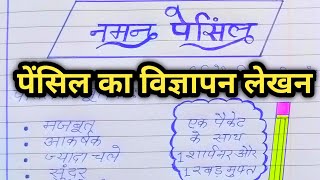 नमन पेंसिल
पेंसिल का विज्ञापन लेखन
मजबूत
आकर्षक
ज्यादा चले
सुंदर
एक पैकेट
के साथ
1 शार्पनर और
1 रबड़ मुफ्त